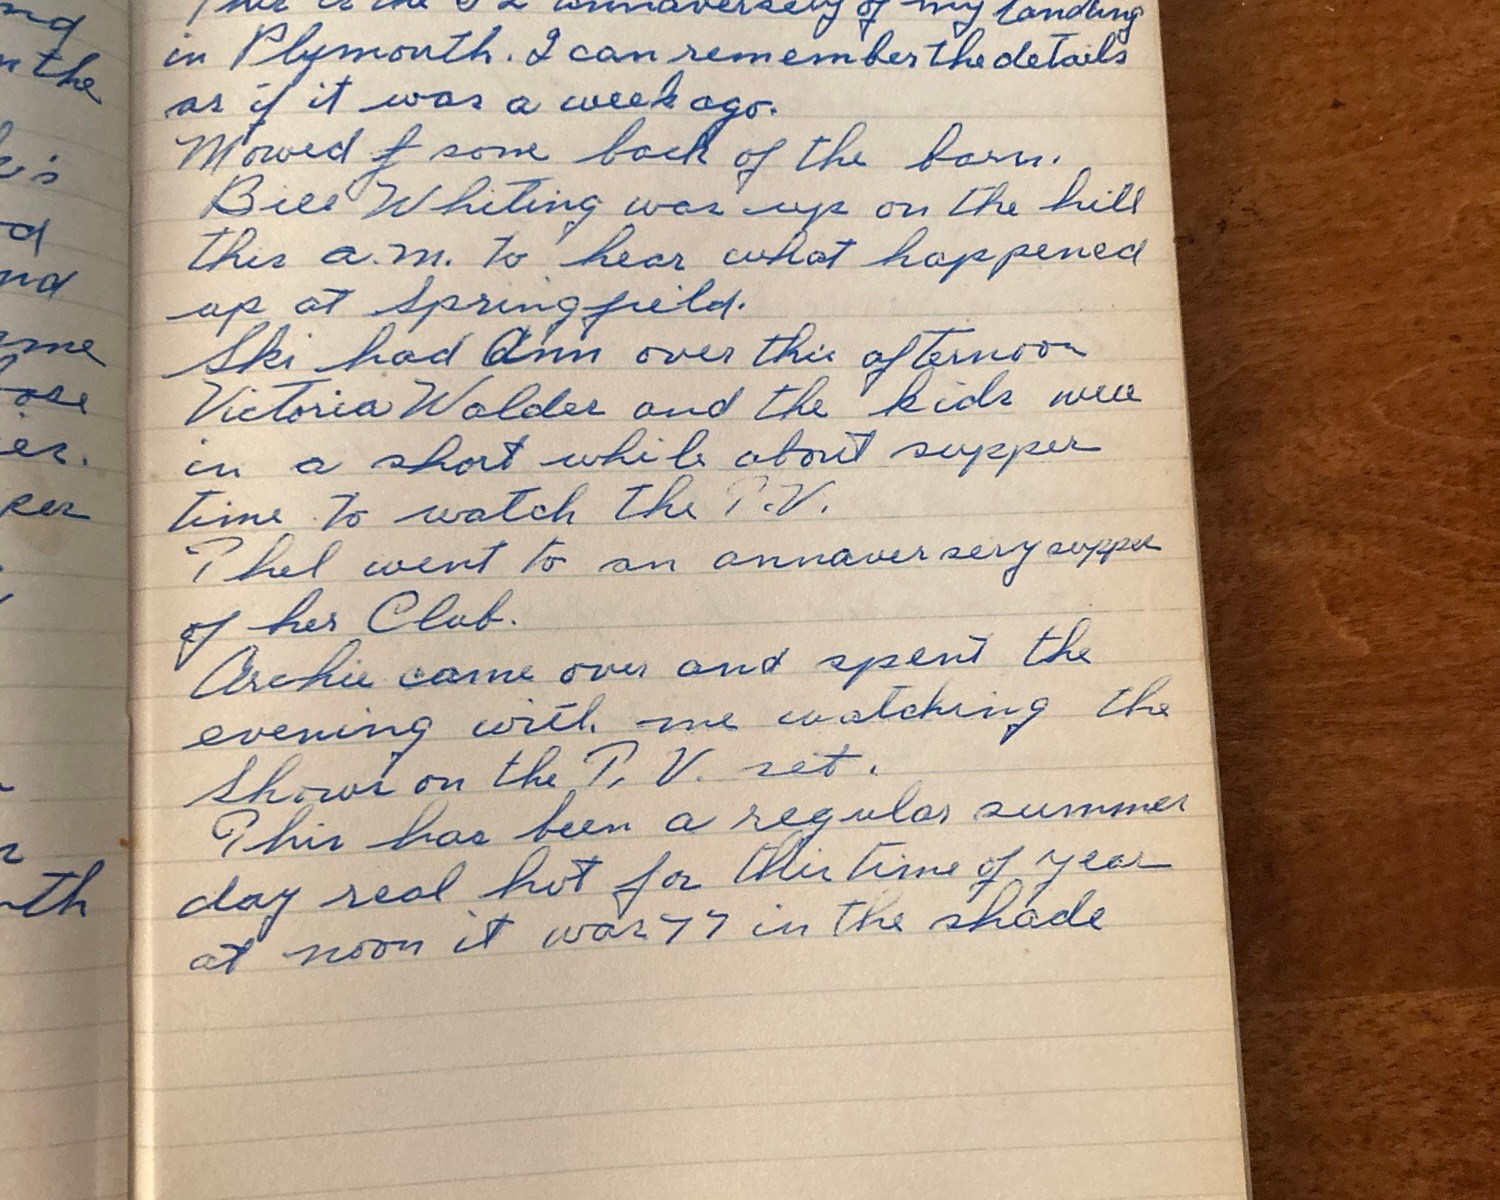 nd
n the
k's
d
nd
me
ose
er.
per
th
This is the 52 annaversery of my landing
in Plymouth. I can remember the details
as if it was a week ago.
Mowed some back of the barn.
Bill Whiting was up on the hill
this a.m. to hear what happened
up at Springfield.
Ski had Ann over this afternoon
Victoria Walder and the kids were
in a short while about supper
time to watch the T.V.
Thel went to an annaversery supper
of her Club.
Archie came over and spent the
evening with me watching the
Shows on the T.V. set.
This has been a regular summer
day real hot for this time of year
at noon it was 77 in the shade